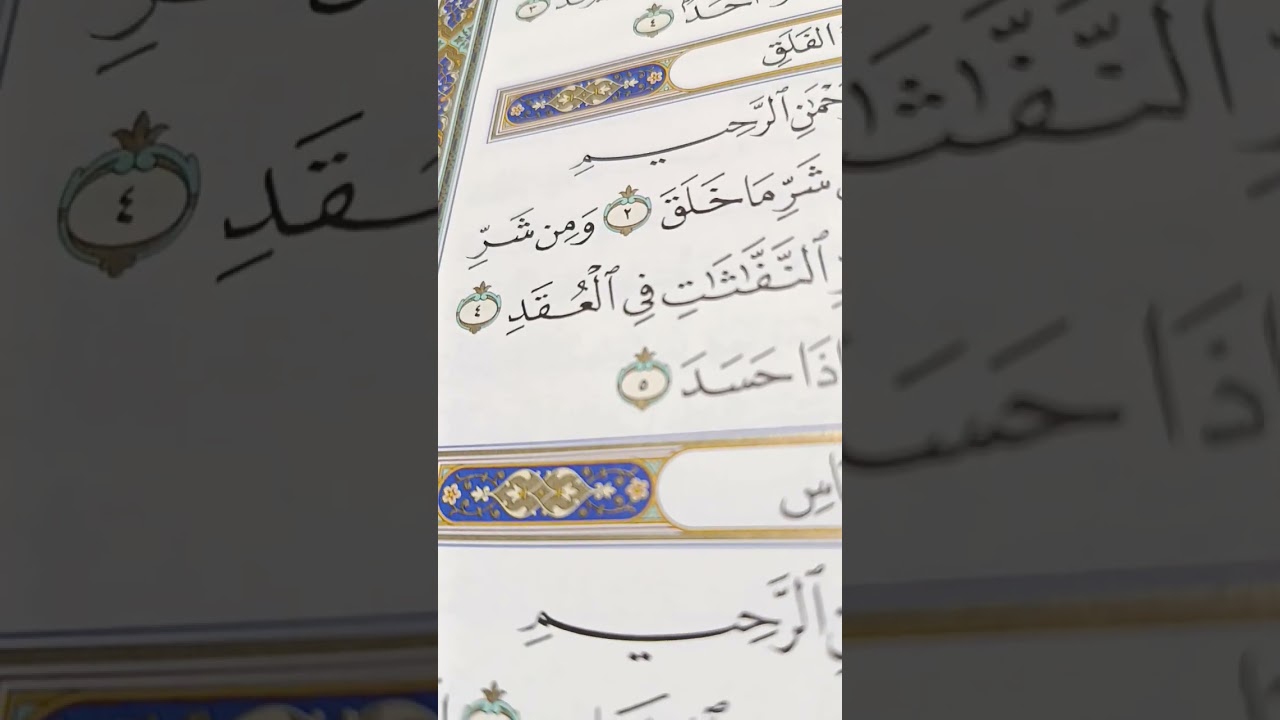 أَحَدٌ ٤
الفَلَقِ
ٱلرَّحِيمِ
شَرِّ مَا خَلَقَ ٢ وَمِن شَرِّ
ٱلنَّفَّٰثَٰتِ فِي ٱلْعُقَدِ ٤
إِذَا حَسَدَ ٥
ٱلرَّحِيمِ